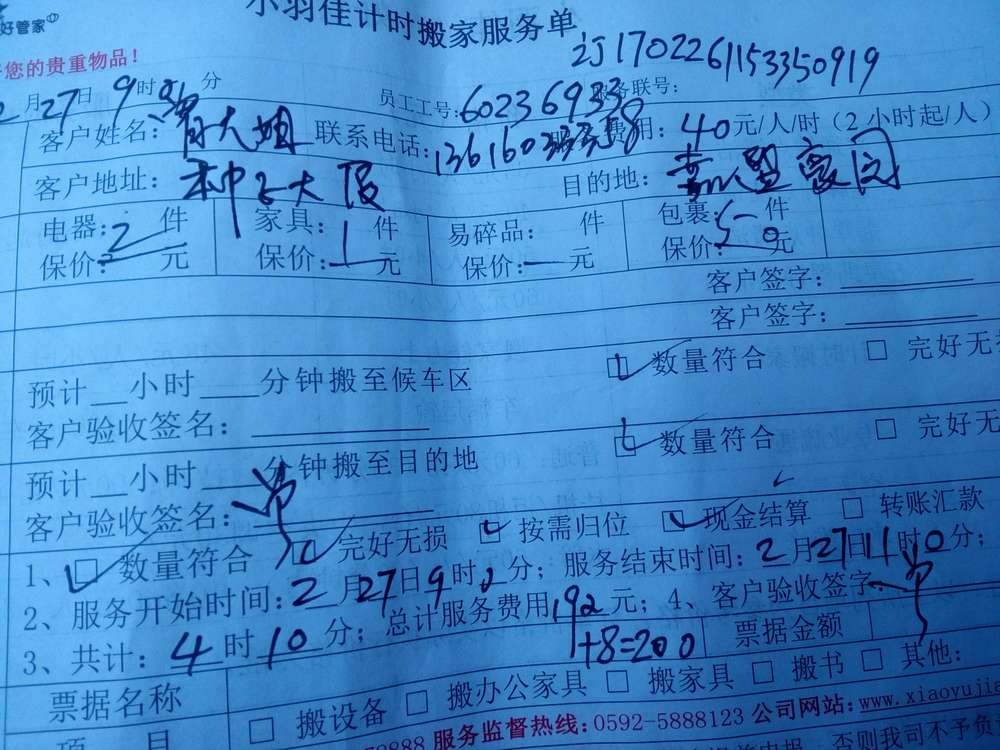 好管家
小羽佳计时搬家服务单
您的贵重物品！
订170226115335091９
2月27日 9时 分 员工工号:60236933 服务联号:
客户姓名: 大姐 联系电话: 费用: 40元/人/时（2小时起/人）
客户地址: 目的地: 豪园
电器:2件 家具: 件 易碎品: 件 包裹: 件
保价: 元 保价:1元 保价:一元 保价:50元
客户签字:
客户签字:
预计 小时 分钟搬至候车区 数量符合 □ 完好无
客户验收签名:
预计 小时 分钟搬至目的地 数量符合 □ 完好无
客户验收签名:
1、□ 数量符合 □ 完好无损 □ 按需归位 □ 现金结算 □ 转账汇款
2、服务开始时间:2月27日9时 分；服务结束时间:2月27日11时0分；
3、共计: 4时10分；总计服务费用192元；4、客户验收签字
+8=200
票据名称 □ 搬设备 □ 搬办公家具 □ 搬家具 □ 搬书 □ 其他: 票据金额
项 目
78888 服务监督热线:0592-5888123 公司网站:www.xiaoyujia
否则我司不予负